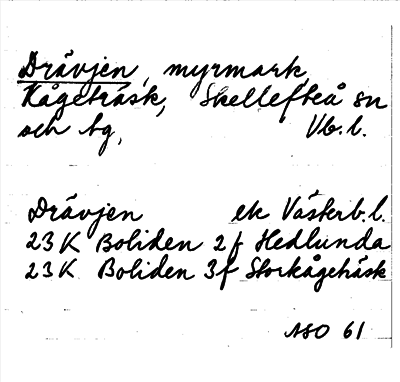 Drävjen, myrmark,
Kågeträsk, Skellefteå sn
och tg, Vb.l.
Drävjen ek Västerb.l.
23 K Boliden 2 f Hedlunda
23 K Boliden 3 f Storkågeträsk
ASO 61